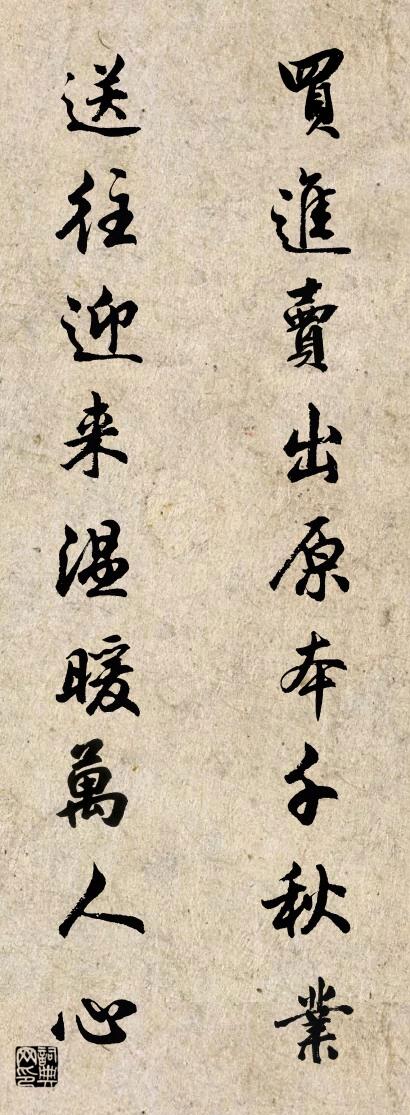 買進賣出原本千秋業
送往迎来温暖萬人心
詞典
网印